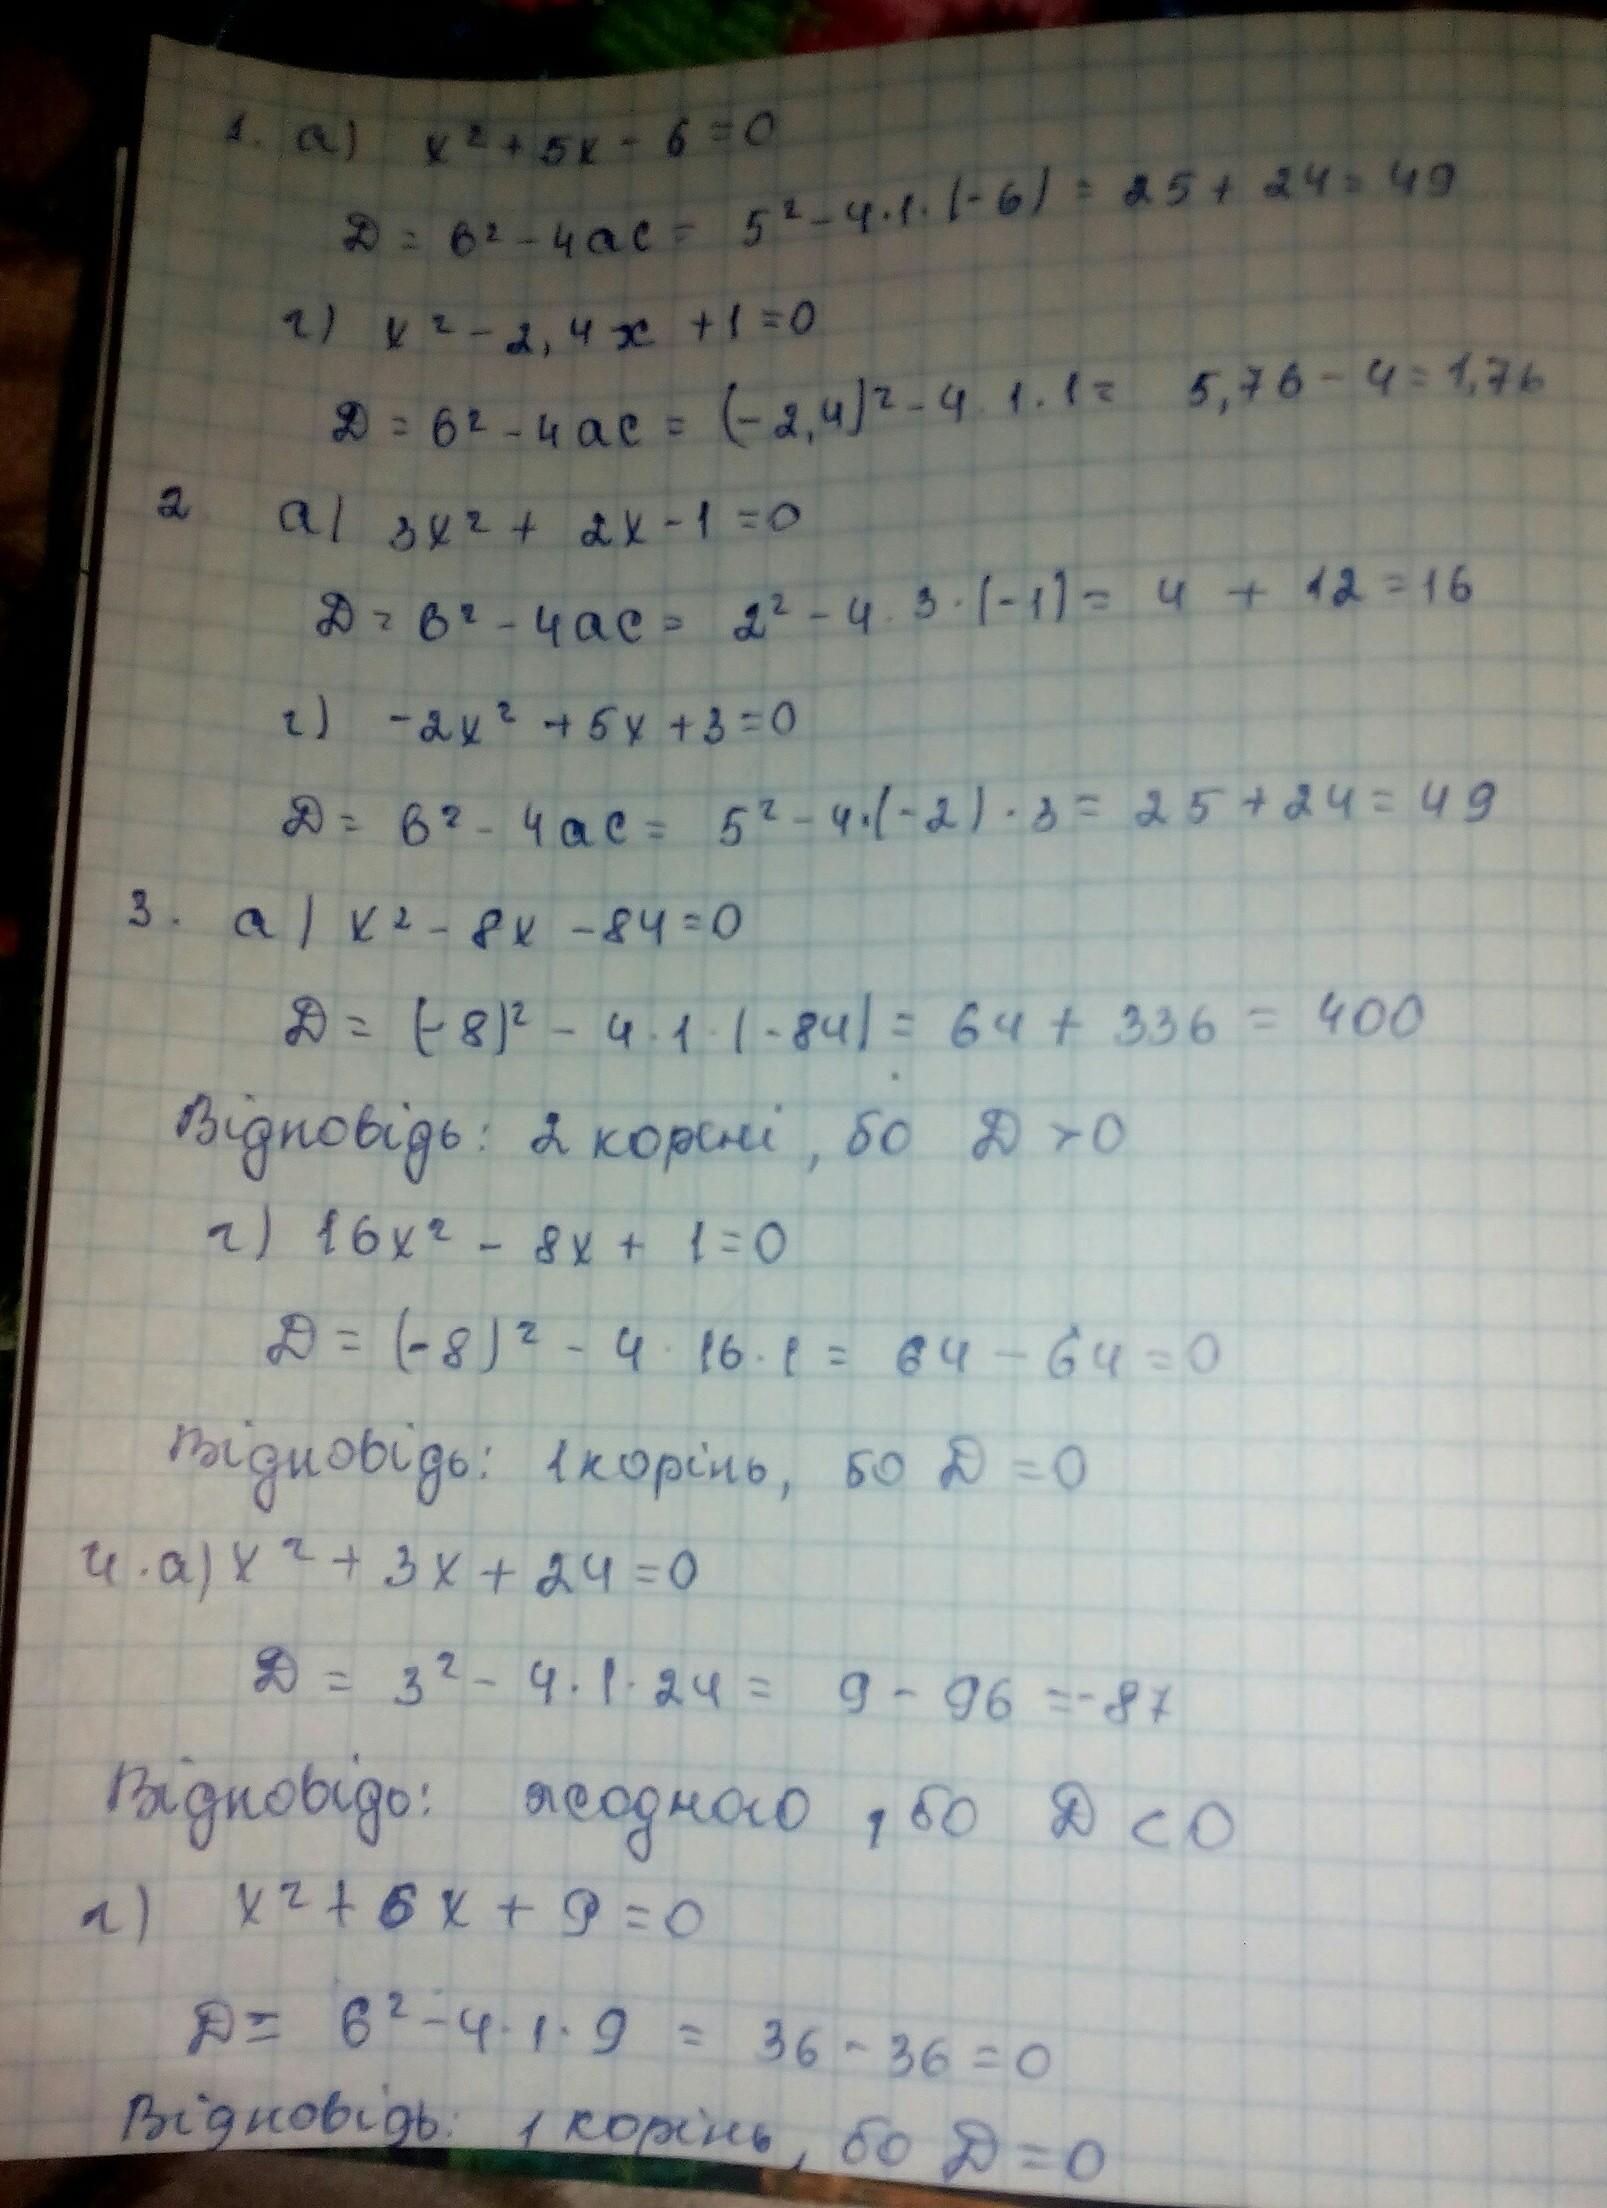 1. а) x² + 5x - 6 = 0
D = b² - 4ac = 5² - 4·1·(-6) = 25 + 24 = 49
г) x² - 2,4x + 1 = 0
D = b² - 4ac = (-2,4)² - 4·1·1 = 5,76 - 4 = 1,76
2 а) 3x² + 2x - 1 = 0
D = b² - 4ac = 2² - 4·3·(-1) = 4 + 12 = 16
г) -2x² + 5x + 3 = 0
D = b² - 4ac = 5² - 4·(-2)·3 = 25 + 24 = 49
3. а) x² - 8x - 84 = 0
D = (-8)² - 4·1·(-84) = 64 + 336 = 400
Відповідь: 2 корені, бо D > 0
г) 16x² - 8x + 1 = 0
D = (-8)² - 4·16·1 = 64 - 64 = 0
Відповідь: 1 корінь, бо D = 0
4. а) x² + 3x + 24 = 0
D = 3² - 4·1·24 = 9 - 96 = -87
Відповідь: жодного, бо D < 0
г) x² + 6x + 9 = 0
D = 6² - 4·1·9 = 36 - 36 = 0
Відповідь: 1 корінь, бо D = 0